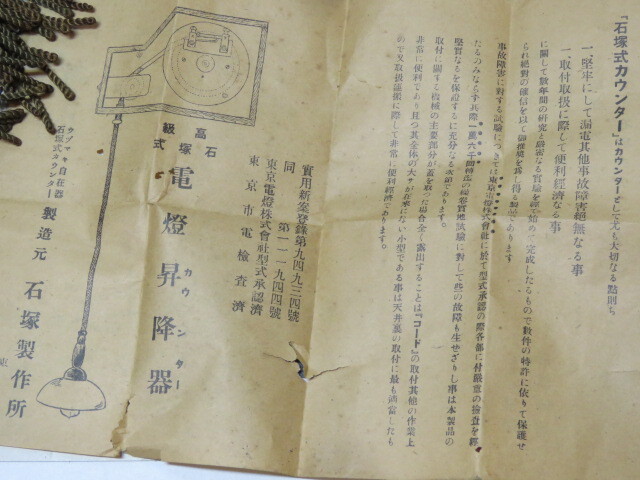 「石塚式カウンター」はカウンターとして尤も大切なる點則ち
一、堅牢にして漏電其他事故障害絕無なる事
一、取付取扱に際して便利經濟なる事
に關して數年間の研究と綿密なる實驗を經て始めて完成したるもので數件の特許に依りて保護せ
られ絕對の確信を以て御推奬を爲し得る製品であります
事故障害に對する試驗につきては東京電燈株式會社に於て型式承認の際各部に付嚴重の檢査を經
たるのみならず其際一萬六千回
堅實なるを保證するに充分なる次第であります。
取付に關する機械の主要部分が蓋を取つた場合全く露出することは『コード』の取付其他の作業上
非常に便利であり且つ其全体の大さが在來にない小型である事は天井裏の取付に最も適當したも
ので又取扱運搬に際して非常に便利經濟であります。
實用新案登錄第九四九三四號
同 第一一一九四四號
東京電燈株式會社型式承認濟
東京市電檢查濟
石塚式
高級
電燈昇降器
カウンター
タヅマキ自在器
石塚式カウンター
製造元 石塚製作所
東